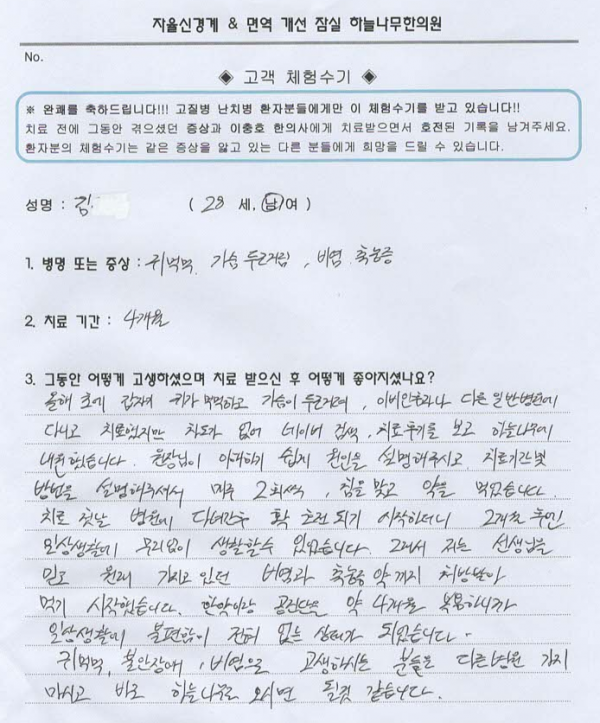 자율신경계 & 면역 개선 잠실 하늘나무한의원
No.
◈ 고객 체험수기 ◈
※ 완쾌를 축하드립니다!!! 고질병 난치병 환자분들에게만 이 체험수기를 받고 있습니다!!
치료 전에 그동안 겪으셨던 증상과 이충호 한의사에게 치료받으면서 호전된 기록을 남겨주세요.
환자분의 체험수기는 같은 증상을 앓고 있는 다른 분들에게 희망을 드릴 수 있습니다.
성명 : 김 ( 28 세, 남/여 )
1. 병명 또는 증상 : 귀먹먹, 가슴 두근거림, 비염 축농증
2. 치료 기간 : 4개월
3. 그동안 어떻게 고생하셨으며 치료 받으신 후 어떻게 좋아지셨나요?
올해 초에 갑자기 귀가 먹먹하고 가슴이 두근거려, 이비인후과나 다른 일반병원에
다니고 치료했지만 차도가 없어 네이버 검색, 치료후기를 보고 하늘나무에
내원했습니다. 원장님이 이해하기 쉽게 원인을 설명해주시고 치료기간및
방법을 설명해주셔서 매주 2회씩, 침을 맞고 약을 먹었습니다.
치료 첫날 병원에 다녀간후 확 호전되기 시작하더니 2개월 후엔
일상생활에 무리없이 생활할수 있었습니다. 그래서 저는 선생님을
믿고 원래 가지고 있던 비염과 축농증 약까지 처방받아
먹기 시작했습니다. 한약이랑 공진단을 약 4개월 복용하니까
일상생활에 불편함이 전혀 없는 상태가 되었습니다.
귀먹먹, 불안장애, 비염으로 고생하시는 분들은 다른병원 가지
마시고 바로 하늘나무로 오시면 될것 같습니다.